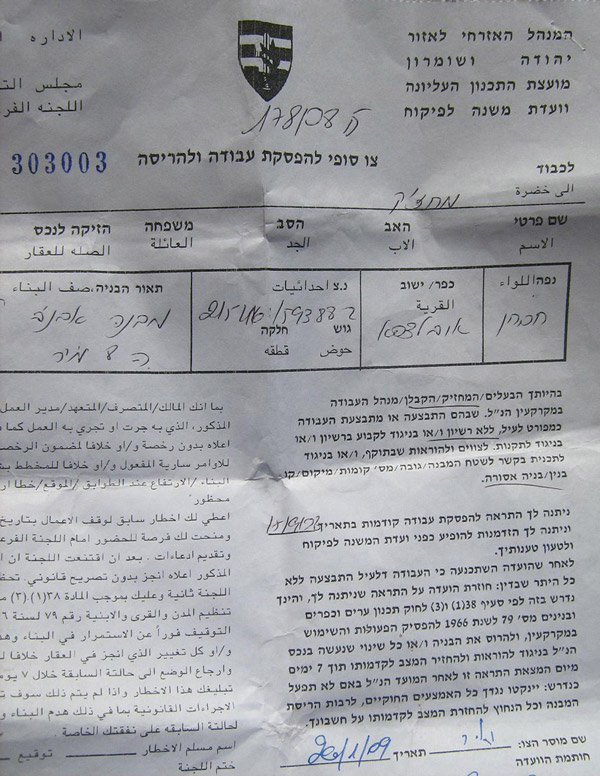 המנהל האזרחי לאזור
יהודה ושומרון
מועצת התכנון העליונה
וועדת משנה לפיקוח
الاداره ا
مجلس الت
اللجنه الفر
178/08
צו סופי להפסקת עבודה ולהריסה
303003
לכבוד
الى حضرة
מחזיק
שם פרטי
האב
הסב
משפחה
הזיקה לנכס
الاسم
الاب
الجد
العائلة
الصله للعقار
נפה اللواء
כפר/ ישוב
القرية
נ.צ احداثيات
גוש חלקה
حوض قطقه
תאור הבניה،صف البناء
חברון
מבנה אבן
בהיותך הבעלים/המחזיק/הקבלן/מנהל העבודה
במקרקעין הנ"ל. שבהם התבצעה או מתבצעת העבודה
כמפורט לעיל, ללא רשיון ו/או בניגוד לקבוע ברשיון ו/או
בניגוד לתקנות. לצווים ולהוראות שבתוקף, ו/או בניגוד
לתכנית בקשר לשטח המבנה/גובה/מס' קומות/מיקום/קו
בנין/בניה אסורה.
ניתנה לך התראה להפסקת עבודה קודמות בתאריך
וניתנה לך הזדמנות להופיע בפני ועדת המשנה לפיקוח
ולטעון טענותיך.
לאחר שהועדה השתכנעה כי העבודה דלעיל התבצעה ללא
כל היתר שבדין: חוזרת הועדה על התראה שניתנה לך, והינך
נדרש בזה לפי סעיף 38(1) ו(3) לחוק תכנון ערים וכפרים
ובנינים מס' 79 לשנת 1966 להפסיק הפעולות והשימוש
במקרקעין, ולהרוס את הבניה ו/או כל שינוי שנעשה בנכס
הנ"ל בניגוד להוראות ולהחזיר המצב לקדמותו תוך 7 ימים
מיום המצאת התראה זו לאחר המועד הנ"ל באם לא תפעל
כנדרש: יינקטו נגדך כל האמצעים החוקיים, לרבות הריסת
המבנה וכל הנחוץ להחזרת המצב לקדמותו על חשבונך.
שם מוסר הצו:
תאריך 20/1/09
חותמת הוועדה
بما انك المالك/المتصرف/المتعهد/مدير العمل
المذكور، الذي به جرت او تجري به العمل كما
اعلاه بدون رخصة و/او خلافا لمضمون الرخص
للاوامر سارية المفعول و/او خلافا للمخطط ب
البناء/الارتفاع عند الطرايق/الموقع/خطا ار
محظور
اعطي لك اخطار سابق لوقف الاعمال بتاريخ
ومنحت لك فرصة للحضور امام اللجنة الفرع
وتقديم ادعاءات . بعد ان اقتنعت اللجنة ان ا
المذكور اعلاه انجز بدون تصريح قانوني. تحظ
اللجنة ثانية وعليك بموجب المادة ٣٨(١).(٣) م
تنظيم المدن والقرى والابنية رقم ٧٩ لسنة ٦
التوقيف فوراً عن الاستمرار في البناء وهد
و/او كل تغيير الذي انجز في العقار خلافا لم
وارجاع الوضع الى حالتة السابقة خلال ٧ يوم
تبليغك هذا الاخطار واذا لم يتم ذلك سوف ت
الاجراءات القانونية بما في ذلك هدم البناء و
لحالتة السابقه على نفقتك الخاصة .
اسم مسلم الاخطار توقيع
ختم اللجنة